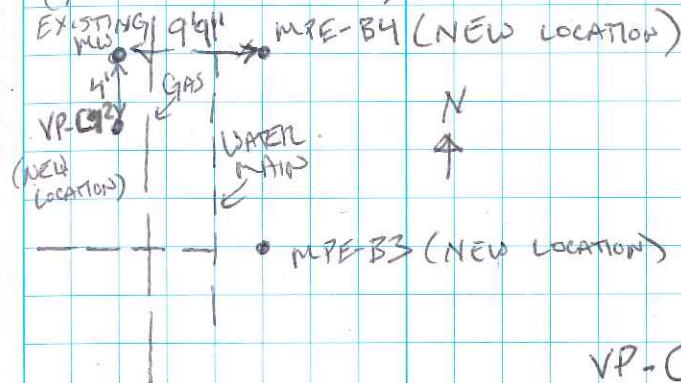 EXISTING
MW
9'9"
MPE-B4 (NEW LOCATION)
4'
GAS
VP-
(NEW
LOCATION)
WATER
MAIN
N
MPE-B3 (NEW LOCATION)
VP-C